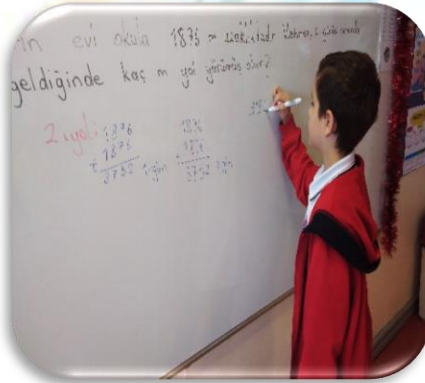 in evi okula 1876 m uzaklıktadır
geldiğinde kaç m yol yürümüş olur?
2. yol: 1876 1876
+ 1876 + 1876
3752 1. gün 3752 2. gün